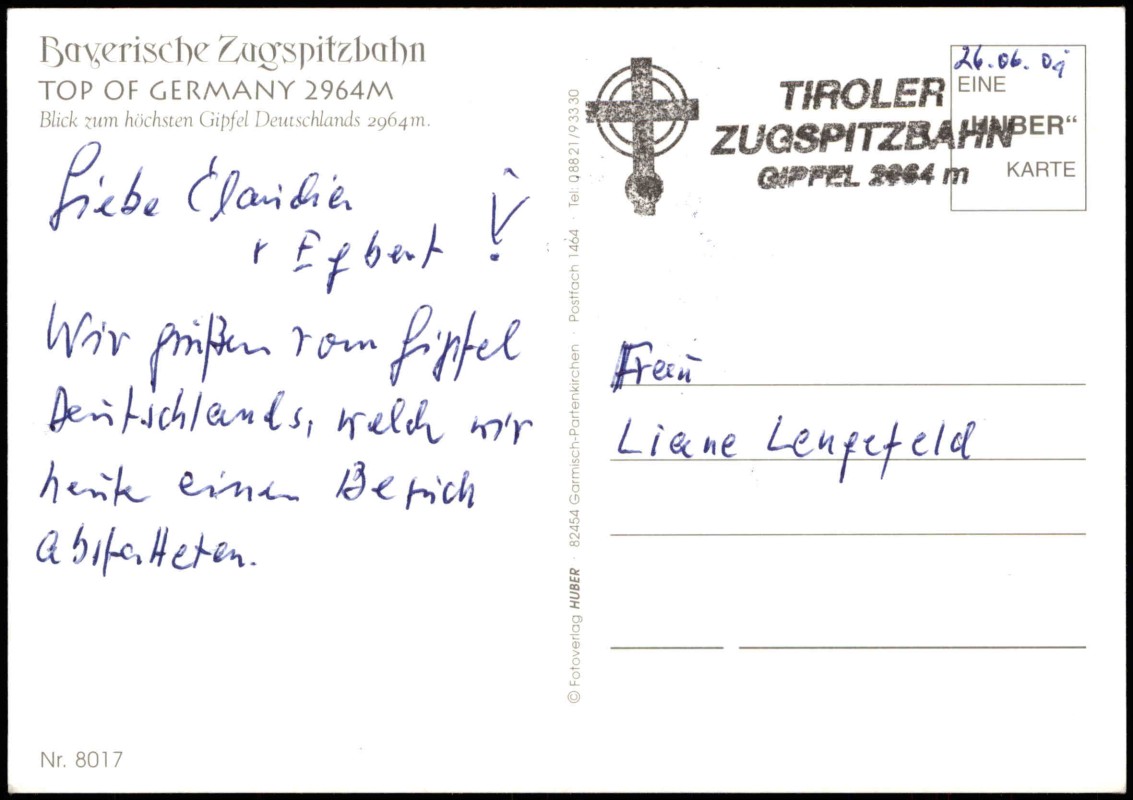 Bayerische Zugspitzbahn
TOP OF GERMANY 2964M
Blick zum höchsten Gipfel Deutschlands 2964m.
Liebe Claudia
+ Egbert !
Wir grüßen vom Gipfel
Deutschlands, welch wir
heute einen Besuch
abstatteten.
Nr. 8017
© Fotoverlag HUBER · 82454 Garmisch-Partenkirchen · Postfach 1464 · Tel: 08821/93330
TIROLER
ZUGSPITZBAHN
GIPFEL 2964 m
26.06.
EINE
„HUBER“
KARTE
Frau
Liane Lengefeld